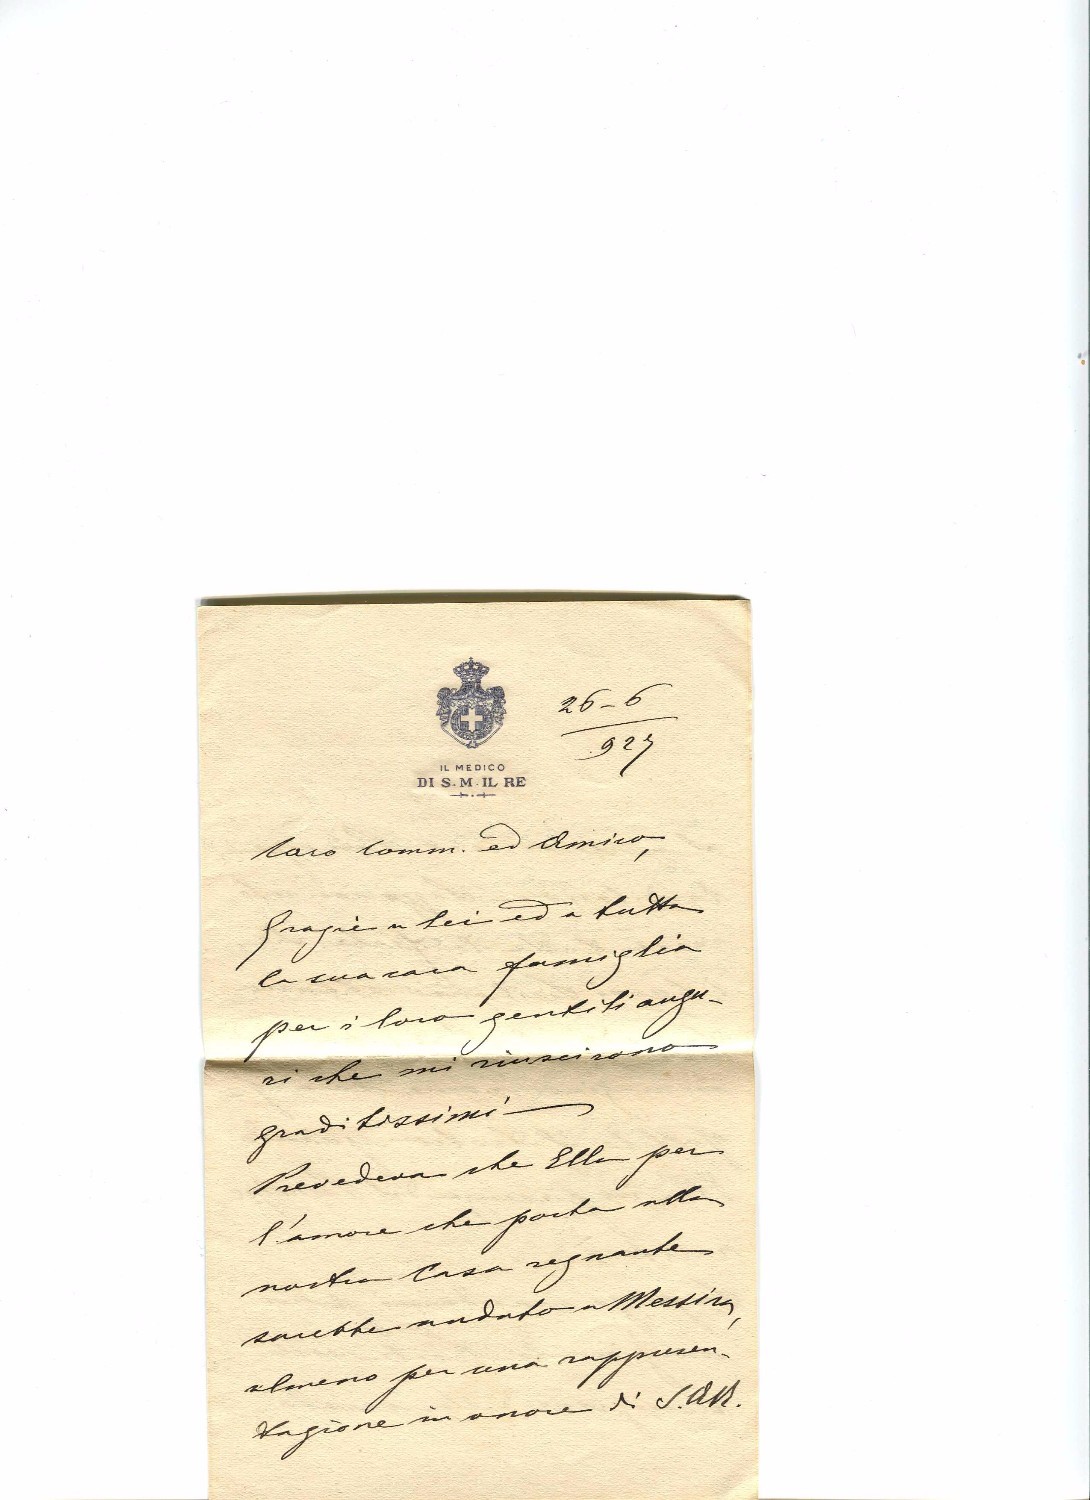 26-6
927
IL MEDICO
DI S. M. IL RE
Caro Comm. ed Amico,
Grazie a Lei ed a tutta
la sua cara famiglia
per i loro gentili augu-
ri che mi riuscirono
graditissimi
Prevedeva che Ella per
l'amore che porta alla
nostra Casa regnante
sarebbe andato a Messina,
almeno per una rappresen-
tazione in onore di S.A.R.